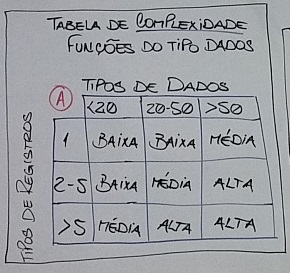 TABELA DE COMPLEXIDADE
FUNÇÕES DO TIPO DADOS
TIPOS DE DADOS
A
<20 20-50 >50
TIPOS DE REGISTROS
1 BAIXA BAIXA MÉDIA
2-5 BAIXA MÉDIA ALTA
>5 MÉDIA ALTA ALTA